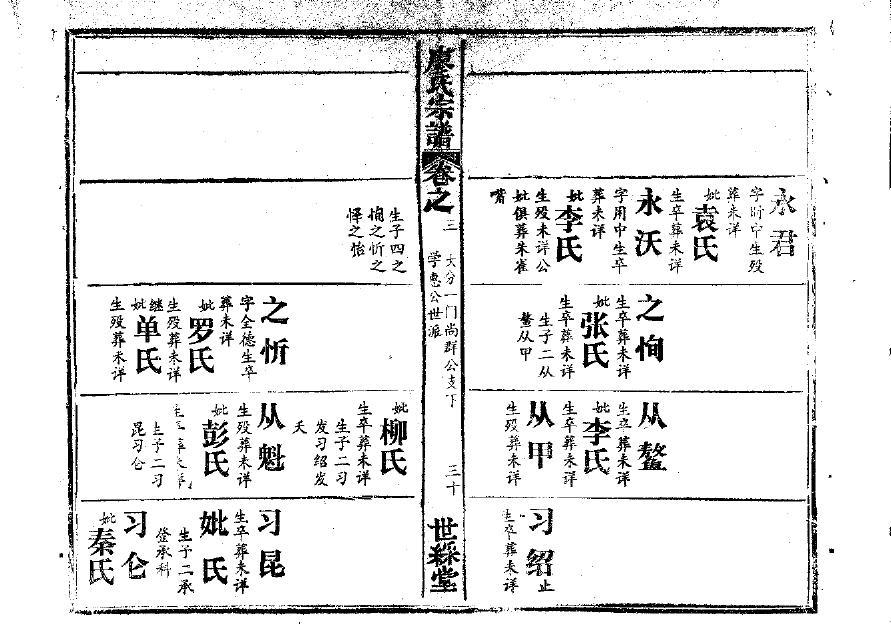 永君
字时中生殁
葬未详
妣袁氏
生卒葬未详
永沃
字用中生卒
葬未详
妣李氏
生殁未详公
妣俱葬朱雀
嘴
之恂
生卒葬未详
妣张氏
生卒葬未详
生子二从
鳌从甲
从鳌
生卒葬未详
妣李氏
生卒葬未详
从甲
生殁葬未详
习绍止
生卒葬未详
廖氏宗譜
卷之三
大分一门尚群公支下
学惠公世派
三十
世綵堂
生子四之
恂之忻之
怿之怡
之忻
字全德生卒
葬未详
妣罗氏
生殁葬未详
继妣单氏
生殁葬未详
妣柳氏
生卒葬未详
生子二习
发习绍发
夭
从魁
生殁葬未详
妣彭氏
生卒葬未详
生子二习
昆习仑
习昆
生卒葬未详
妣氏
生子二承
登承科
习仑
妣秦氏